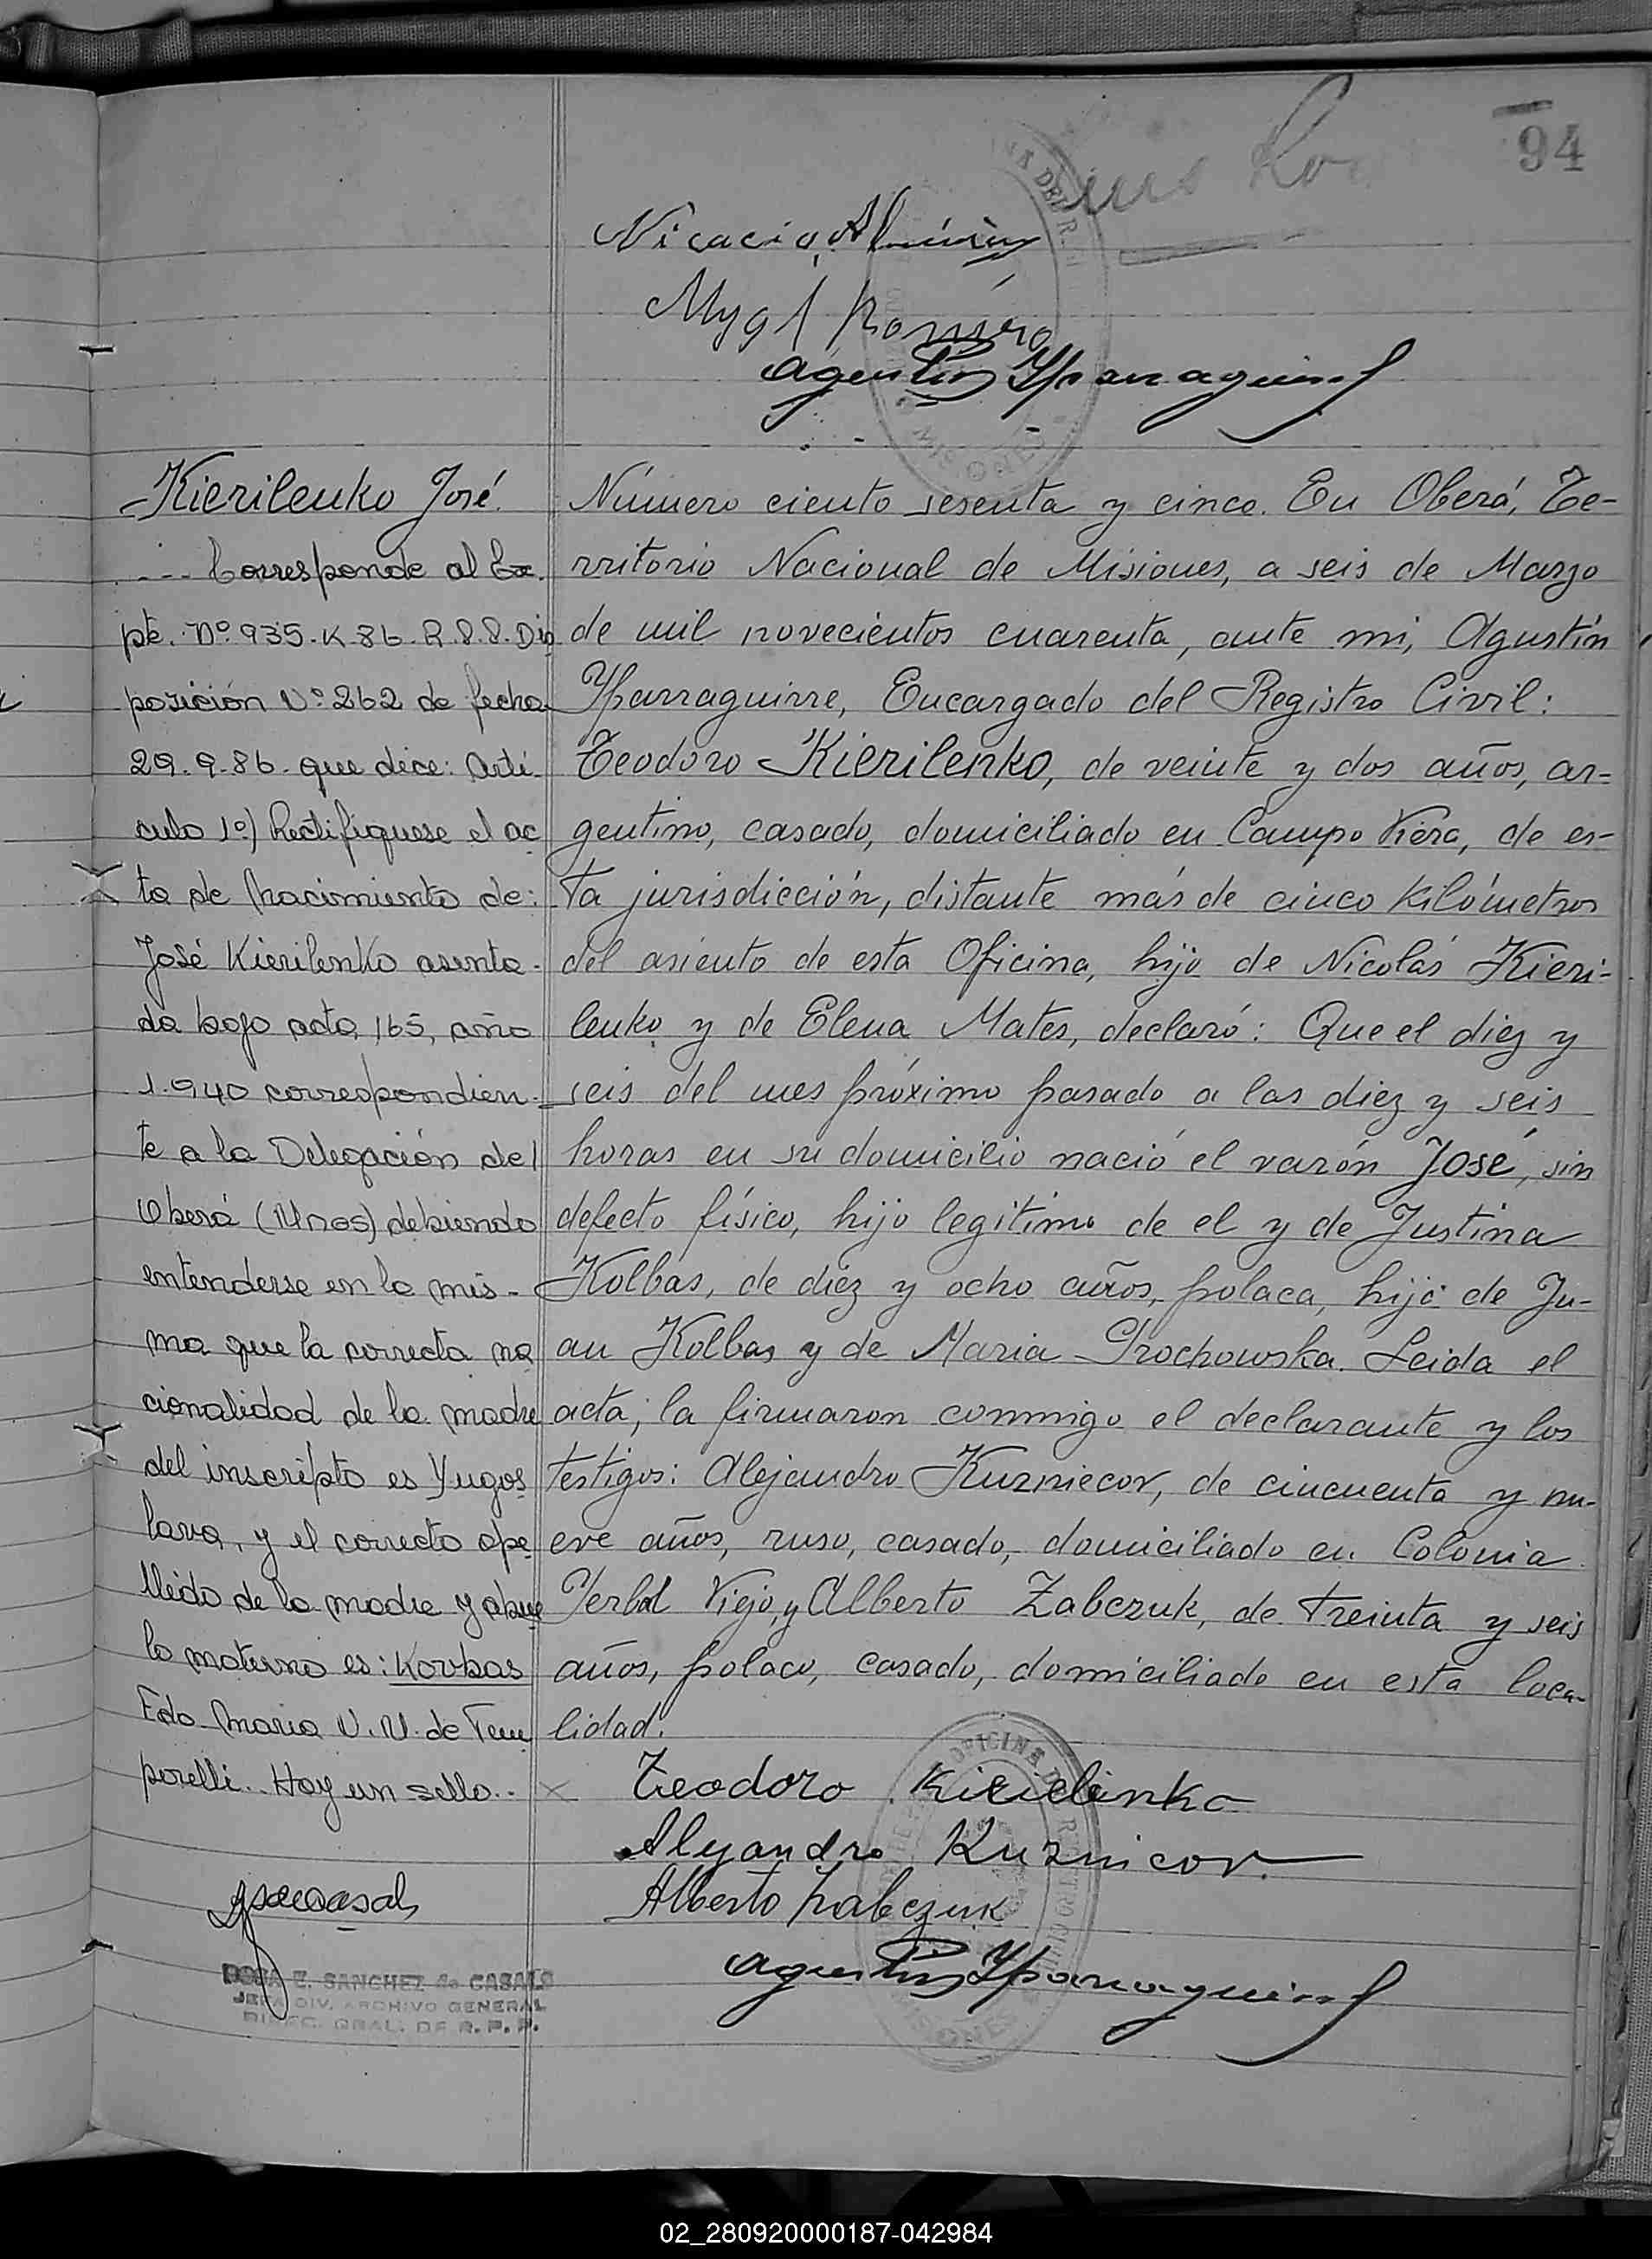 94
Nicacio
Mygl Romero
Agustin Yparraguirre
Kierilenko José.
Corresponde al Ex-
pte. Nº 935-K-86-R.P.P. Dis
posición Nº 262 de fecha
29.9.86. que dice: Artí-
culo 1º) Rectifiquese el ac
ta de nacimiento de:
José Kierilenko asenta-
da bajo acta 165, año
1.940 correspondien-
te a la Delegación del
Oberá (Mnes) debiendo
entenderse en la mis-
ma que la correcta na
cionalidad de la madre
del inscripto es Yugos
lava, y el correcto ape
llido de la madre y abue
lo materno es: Korbas
Fdo. Maria V.N. de Tem
porelli. Hay un sello..
DOSA E. SANCHEZ de CASALS
JEFA DIV. ARCHIVO GENERAL
DIREC. GRAL. DE R.P.P.
Número ciento sesenta y cinco. En Oberá, Te-
rritorio Nacional de Misiones, a seis de Marzo
de mil novecientos cuarenta, ante mi, Agustín
Yparraguirre, Encargado del Registro Civil:
Teodoro Kierilenko, de veinte y dos años, ar=
gentino, casado, domiciliado en Campo Viera, de es-
ta jurisdicción, distante más de cinco kilómetros
del asiento de esta Oficina, hijo de Nicolás Kieri-
lenko y de Elena Mates, declaró: Que el diez y
seis del mes próximo pasado a las diez y seis
horas en su domicilio nació el varón José, sin
defecto físico, hijo legítimo de el y de Justina
Kolbas, de diez y ocho años, polaca, hija de Ju-
an Kolbas y de Maria Prochowska. Leida el
acta, la firmaron conmigo el declarante y los
testigos: Alejandro Kuzniecov, de cincuenta y nu-
eve años, ruso, casado, domiciliado en Colonia
Yerbal Viejo, y Alberto Zabczuk, de treinta y seis
años, polaco, casado, domiciliado en esta loca-
lidad.
Teodoro Kirielinko
Alejandro Kuznicov.
Alberto Zabczuk
Agustin Yparraguirre
02_280920000187-042984